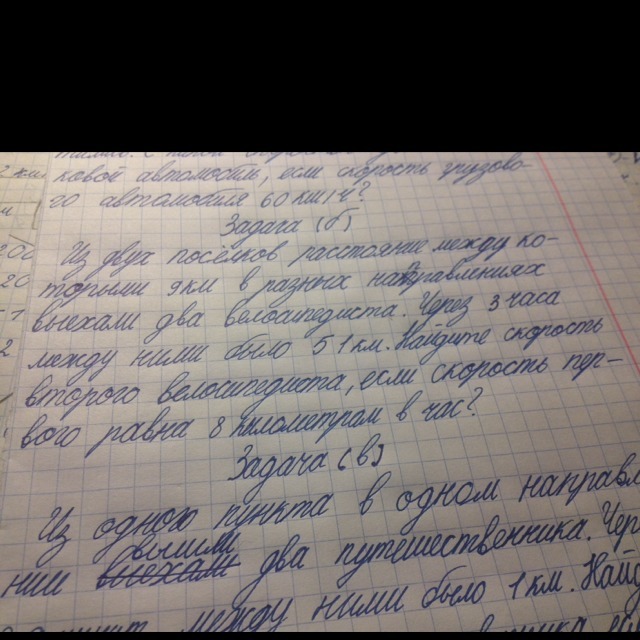 ковой автомобиль, если скорость грузово-
го автомобиля 60 км/ч?
Задача (б)
Из двух посёлков расстояние между ко-
торыми 9 км в разных направлениях
выехали два велосипедиста. Через 3 часа
между ними было 51 км. Найдите скорость
второго велосипедиста, если скорость пер-
вого равна 8 километрам в час?
Задача (в)
Из одного пункта в одном направл
вышли
нии выехали два путешественника. Чер
между ними было 1 км. Найд